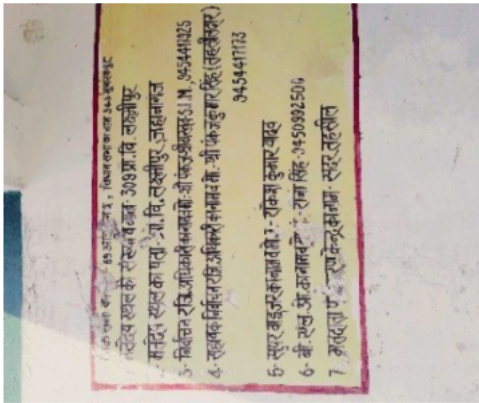 69 विधान सभा का नाम 346 मुबारकपुर
मतदेय स्थल की संख्या व नाम 309 प्रा. वि. लक्ष्मीपुर
मतदेय स्थल का पता - प्रा. वि. लक्ष्मीपुर, जहानागंज
3- निर्वाचन रजि. अधिकारी का नाम व मो.- श्री पंकज श्रीवास्तव S.D.M. 9454417925
4- सहायक निर्वाचन रजि. अधिकारी का नाम व मो.- श्री पंकज कुमार सिंह (तहसीलदार)
9454417173
5- सुपरवाइजर का नाम व मो. - राकेश कुमार यादव
6- बी. एल. ओ. का नाम व - राना सिंह - 9450992500
7. मतदाता केन्द्र का नाम - सदर तहसील